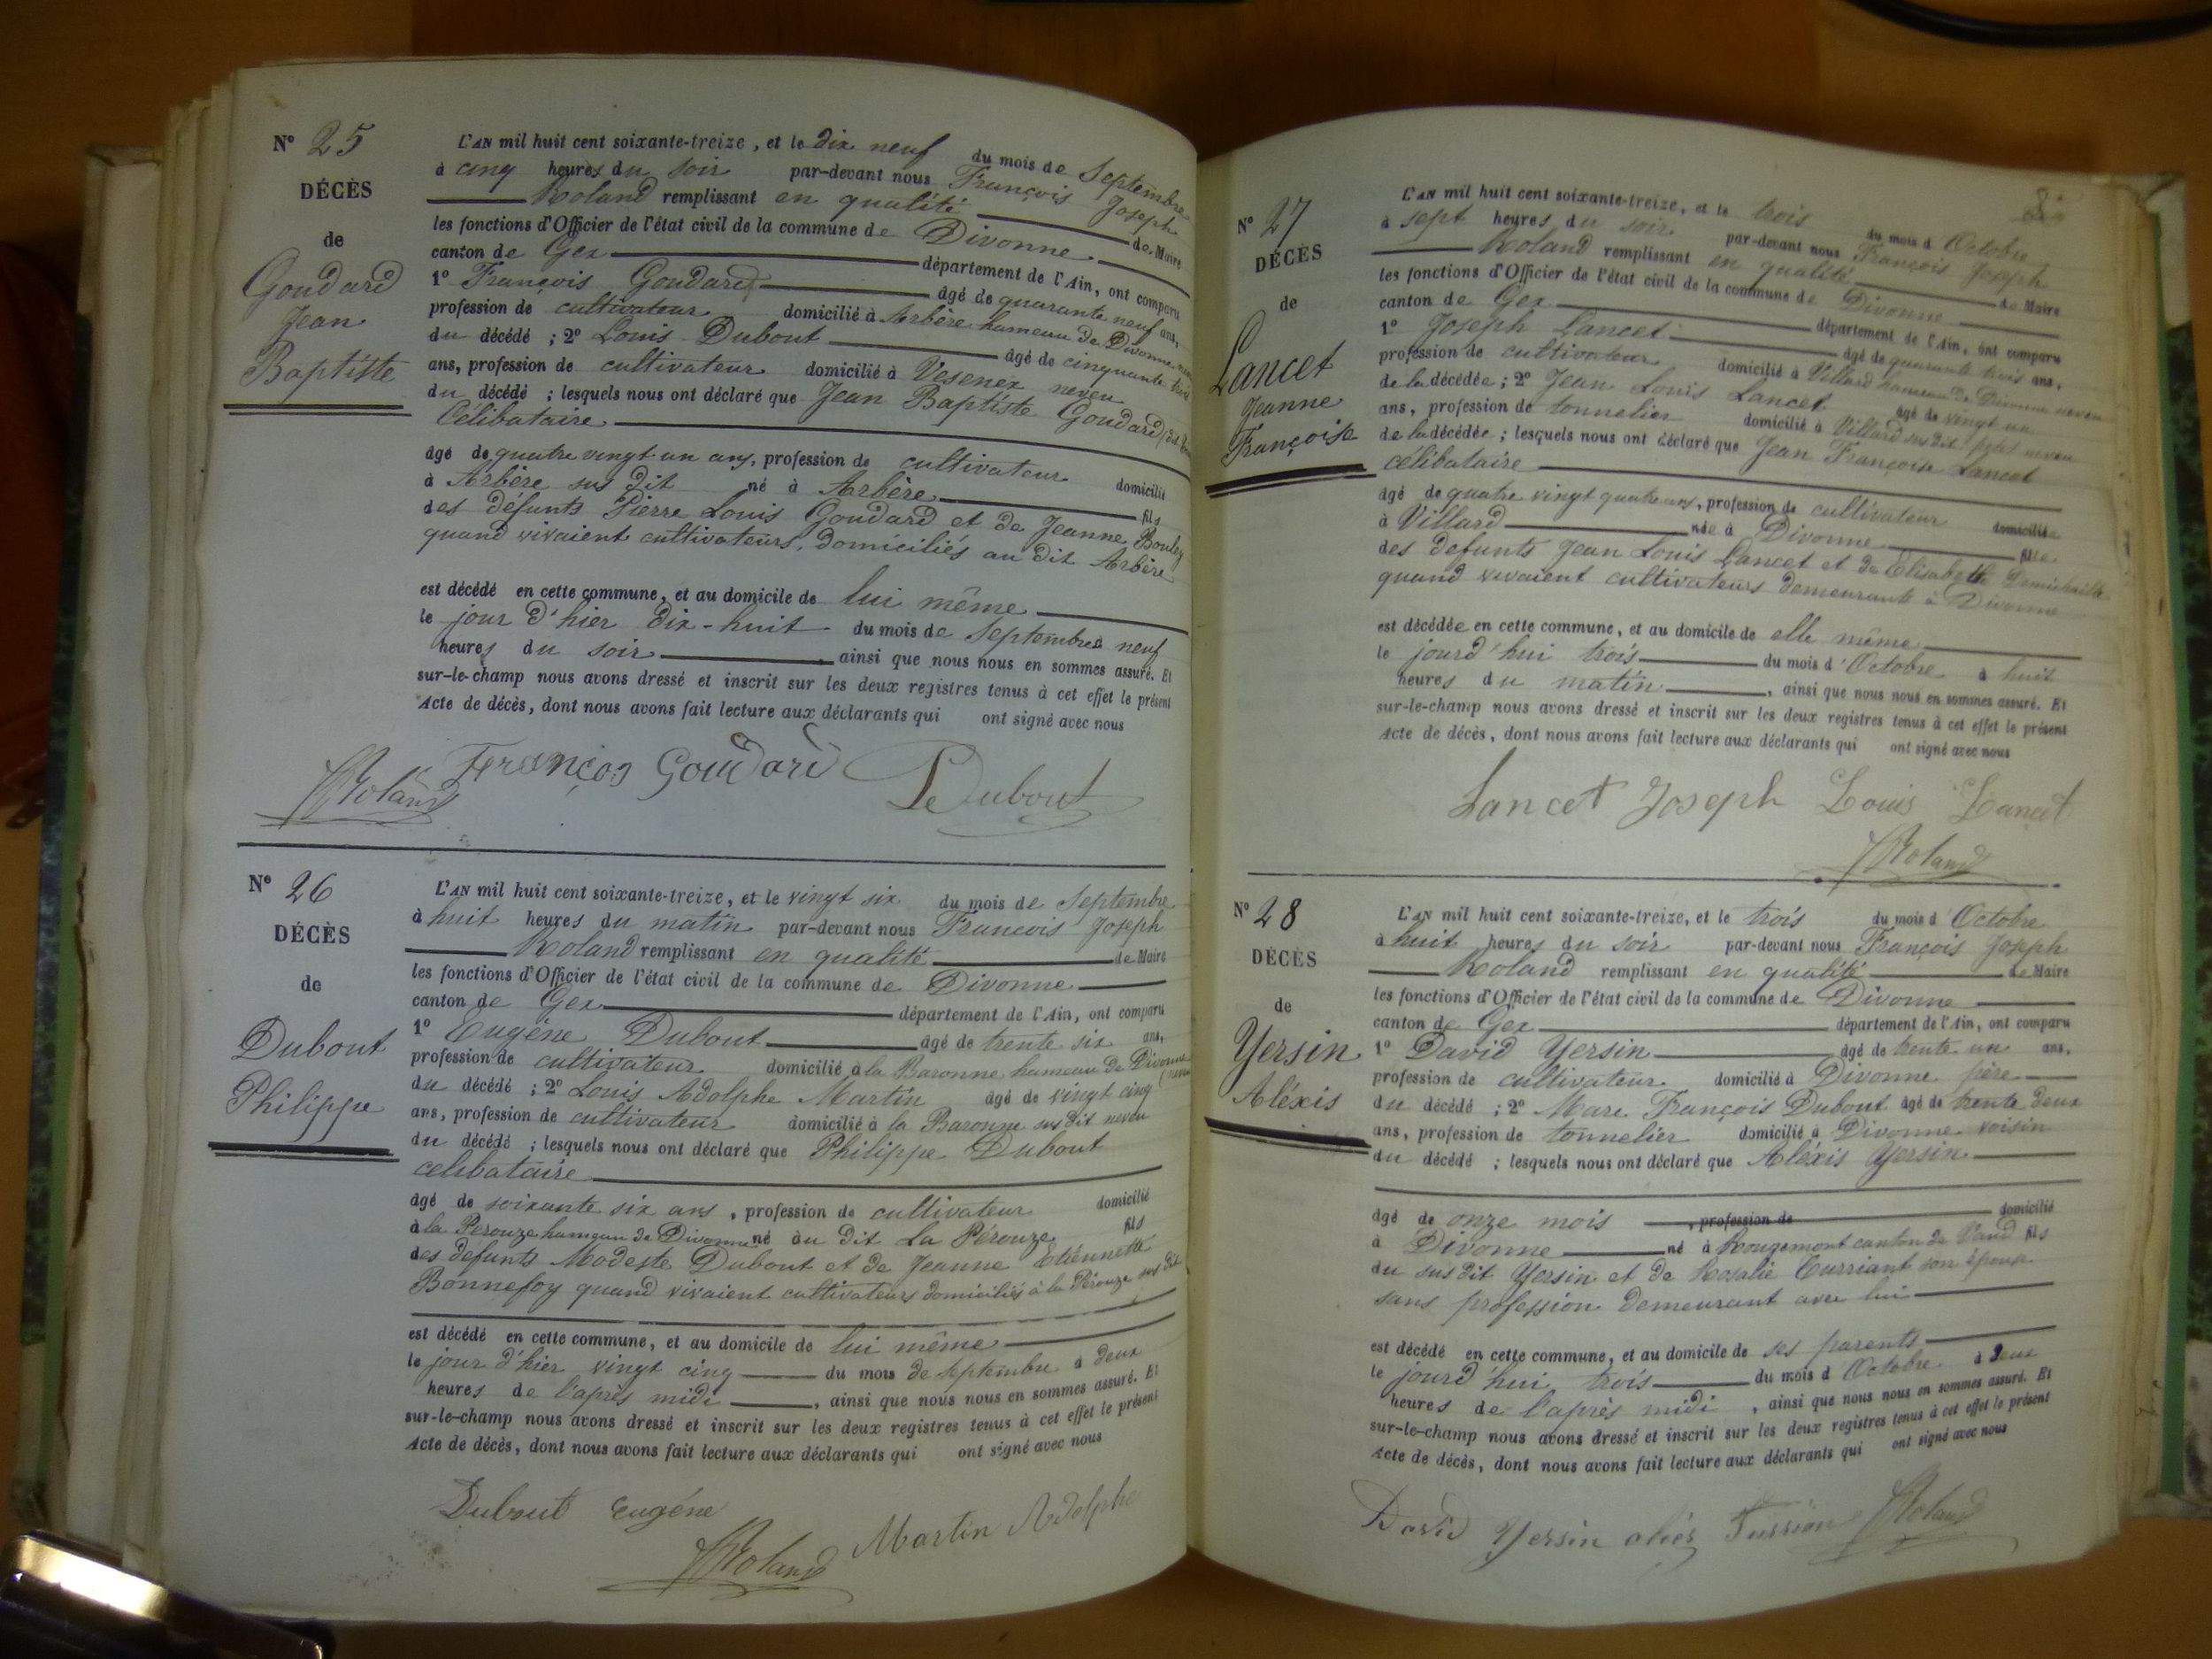 N° 25
DÉCÈS
de
Goudard
Jean
Baptiste
L'AN mil huit cent soixante-treize, et le dix neuf du mois de Septembre
à cinq heures du soir par-devant nous François Joseph
Roland remplissant en qualité de Maire
les fonctions d'Officier de l'état civil de la commune de Divonne
canton de Gex département de l'Ain, ont comparu
1° François Goudard âgé de quarante neuf ans,
profession de cultivateur domicilié à Arbère hameau de Divonne
du décédé ; 2° Louis Dubout âgé de cinquante
ans, profession de cultivateur domicilié à Vesenex neveu
du décédé ; lesquels nous ont déclaré que Jean Baptiste Goudard
Célibataire
âgé de quatre vingt un ans, profession de cultivateur domicilié
à Arbère sus dit né à Arbère fils
des défunts Pierre Louis Goudard et de Jeanne
quand vivaient cultivateurs, domiciliés au dit Arbère
est décédé en cette commune, et au domicile de lui même
le jour d'hier dix-huit du mois de Septembre à neuf
heures du soir, ainsi que nous nous en sommes assuré. Et
sur-le-champ nous avons dressé et inscrit sur les deux registres tenus à cet effet le présent
Acte de décès, dont nous avons fait lecture aux déclarants qui ont signé avec nous
Roland Franços Goudard Ls Dubout
N° 26
DÉCÈS
de
Dubout
Philippe
L'AN mil huit cent soixante-treize, et le vingt six du mois de Septembre
à huit heures du matin par-devant nous Francois Joseph
Roland remplissant en qualité de Maire
les fonctions d'Officier de l'état civil de la commune de Divonne
canton de Gex département de l'Ain, ont comparu
1° Eugène Dubout âgé de trente six ans,
profession de cultivateur domicilié à la Baronne hameau de Divonne
du décédé ; 2° Louis Adolphe Martin âgé de vingt cinq
ans, profession de cultivateur domicilié à la Baronne sus dit neveu
du décédé ; lesquels nous ont déclaré que Philippe Dubout
celibataire
âgé de soixante six ans, profession de cultivateur domicilié
à la Pérouze hameau de Divonne né au dit La Pérouze fils
des defunts Modeste Dubout et de Jeanne Etiénnette
Bonnefoy quand vivaient cultivateurs domiciliés à la Pérouze sus dit
est décédé en cette commune, et au domicile de lui même
le jour d'hier vingt cinq du mois de Septembre à deux
heures de l'après midi, ainsi que nous nous en sommes assuré. Et
sur-le-champ nous avons dressé et inscrit sur les deux registres tenus à cet effet le présent
Acte de décès, dont nous avons fait lecture aux déclarants qui ont signé avec nous
Dubout Eugéne
Roland Martin Adolphe
N° 27
DÉCÈS
de
Lancet
Jeanne
Françoise
L'AN mil huit cent soixante-treize, et le trois du mois d'Octobre
à sept heures du soir par-devant nous François Joseph
Roland remplissant en qualité de Maire
les fonctions d'Officier de l'état civil de la commune de Divonne
canton de Gex département de l'Ain, ont comparu
1° Joseph Lancet âgé de quarante trois ans,
profession de cultivateur domicilié à Villard hameau de Divonne neveu
de la décédée ; 2° Jean Louis Lancet âgé de vingt un
ans, profession de tonnelier domicilié à Villard sus dit petit neveu
de la décédée ; lesquels nous ont déclaré que Jean Françoise Lancet
celibataire
âgé de quatre vingt quatre ans, profession de cultivateur domiciliée
à Villard née à Divonne fille
des defunts Jean Louis Lancet et de Elisabeth
quand vivaient cultivateurs demeurants à Divonne
est décédée en cette commune, et au domicile de elle même
le jourd'hui trois du mois d'Octobre à huit
heures du matin, ainsi que nous nous en sommes assuré. Et
sur-le-champ nous avons dressé et inscrit sur les deux registres tenus à cet effet le présent
Acte de décès, dont nous avons fait lecture aux déclarants qui ont signé avec nous
Lancet Joseph Louis Lancet
Roland
N° 28
DÉCÈS
de
Yersin
Aléxis
L'AN mil huit cent soixante-treize, et le trois du mois d'Octobre
à huit heures du soir par-devant nous François Joseph
Roland remplissant en qualité de Maire
les fonctions d'Officier de l'état civil de la commune de Divonne
canton de Gex département de l'Ain, ont comparu
1° David Yersin âgé de trente un ans,
profession de cultivateur domicilié à Divonne père
du décédé ; 2° Marc François Dubout âgé de trente deux
ans, profession de tonnelier domicilié à Divonne voisin
du décédé ; lesquels nous ont déclaré que Aléxis Yersin
âgé de onze mois, profession de domicilié
à Divonne né à Rougemont canton de Vaud fils
du sus dit Yersin et de Rosalie son épouse
sans profession demeurant avec lui
est décédé en cette commune, et au domicile de ses parents
le jourd'hui trois du mois d'Octobre à deux
heures de l'après midi, ainsi que nous nous en sommes assuré. Et
sur-le-champ nous avons dressé et inscrit sur les deux registres tenus à cet effet le présent
Acte de décès, dont nous avons fait lecture aux déclarants qui ont signé avec nous
David Yersin Roland